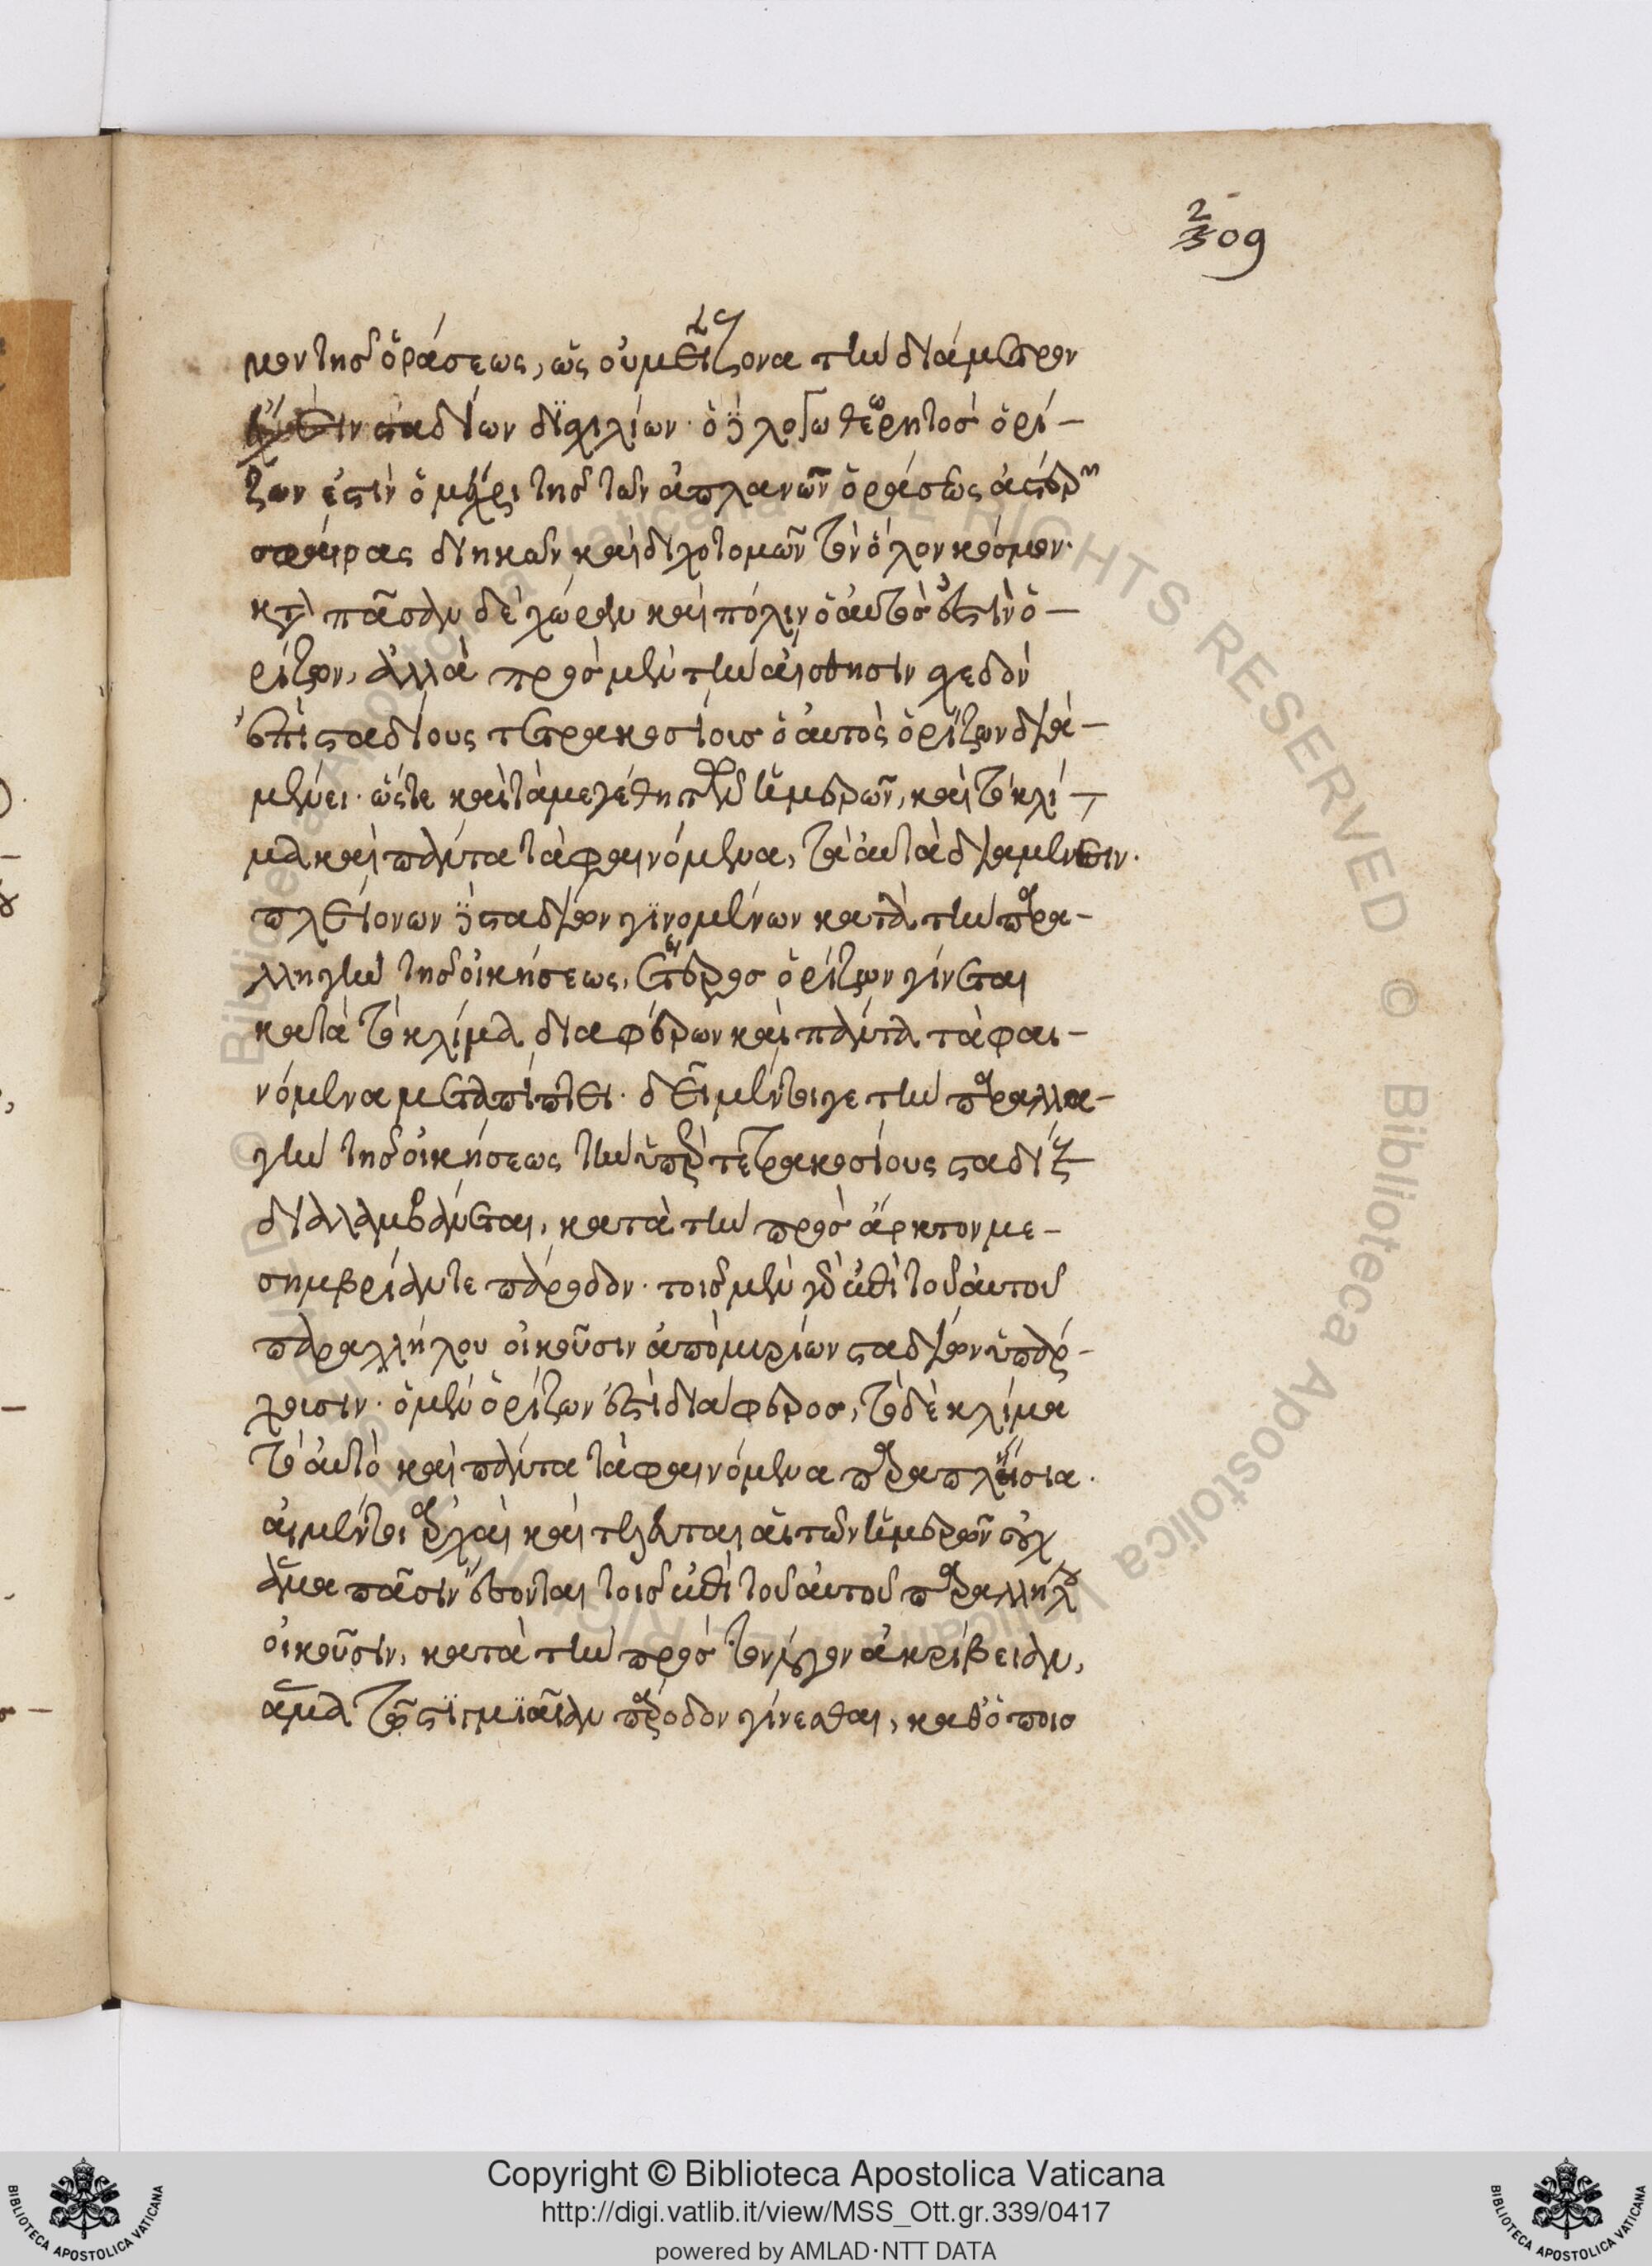 2
309
μον της ὁράσεως, ὡς οὐ μείζονα την διάμετρον
ἔχειν σταδίων δισχιλίων· ὁ δὲ λόγω θεωρητὸς ὁρί-
ζων ἐστὶν ὁ μέχρι της των ἀπλανῶν ὁράσεως ἀστέρων
σφαίρας διηκων καὶ διχοτομῶν τὸν ὅλον κόσμον·
κατὰ πᾶσαν δὲ χώραν καὶ πόλιν ὁ αὐτὸς ἐστὶν ὁ-
ρίζων, ἀλλὰ πρὸς μὲν την αἴσθησιν σχεδὸν
ἐπὶ σταδίους τετρακοσίοις ὁ αὐτὸς ὁρίζων δια-
μένει· ὥστε καὶ τὰ μεγέθη των ἡμερῶν, καὶ τὸ κλί-
μα καὶ πάντα τὰ φαινόμενα, τὰ αὐτὰ διαμένειν·
πλειόνων δὲ σταδίων γινομένων κατὰ την παρα-
λληγην της οἰκήσεως, ἕτερος ὁρίζων γίνεται
κατὰ τὸ κλίμα διαφέρων καὶ πάντα τὰ φαι-
νόμενα μεταπίπτει· δεῖ μέντοι γε την παραλλα-
γην της οἰκήσεως την ὑπὲρ τετρακοσίους σταδί
διαλαμβάνεται, κατὰ την πρὸς ἄρκτον με-
σημβρίαν τε πάροδον· τοις μὲν γὰρ ἐπὶ του αὐτου
παραλλήλου οἰκοῦσιν ἀπὸ μυρίων σταδίων ὑπάρ-
χουσιν· ὁ μὲν ὁρίζων ἐστὶ διάφορος, τὸ δὲ κλίμα
τὸ αὐτὸ καὶ πάντα τὰ φαινόμενα παραπλήσια·
αἱ μέντοι ἀρχαὶ καὶ τελευται αἱ των ἡμερῶν οὐχ
ἅμα πᾶσιν ἔσονται τοις ἐπὶ του αὐτου παραλλήλου
οἰκοῦσιν, κατὰ την πρὸς τὸν λόγον ἀκρίβειαν,
ἅμα τῷ στιγμιαίαν πάροδον γίνεσθαι, καθ' ὁποιο
Copyright © Biblioteca Apostolica Vaticana
http://digi.vatlib.it/view/MSS_Ott.gr.339/0417
powered by AMLAD·NTT DATA
BIBLIOTECA APOSTOLICA VATICANA
BIBLIOTECA APOSTOLICA VATICANA